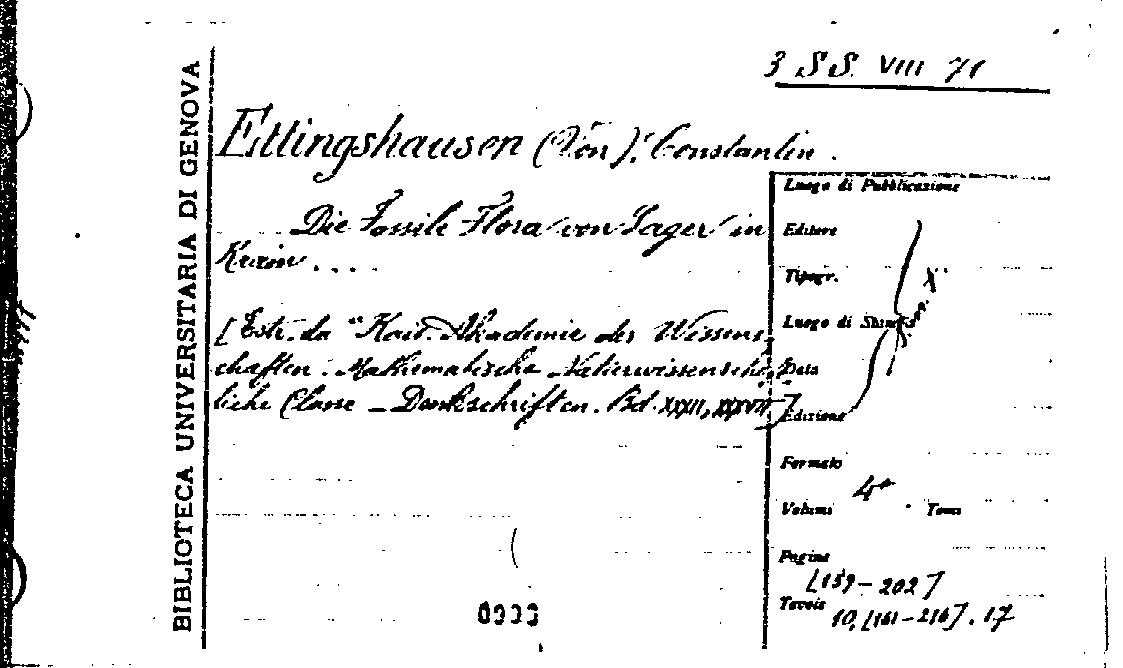 BIBLIOTECA UNIVERSITARIA DI GENOVA
3 S S. VIII 71
Ettingshausen (Von), Constantin.
Die Fossile Flora von Sager in
Krain....
[Estr. da "Kais. Akademie des Wissens-
chaften. Mathematische Naturwissenschaft-
liche Classe - Denkschriften. Bd. XXXII, XXXVII]
Luogo di Pubblicazione
Editore
Tipogr.
Luogo di Stampa
Data
Edizione
Formato
4°
Volumi
Tomi
Pagine
[159-202]
Tavole
10, [161-216]. 17